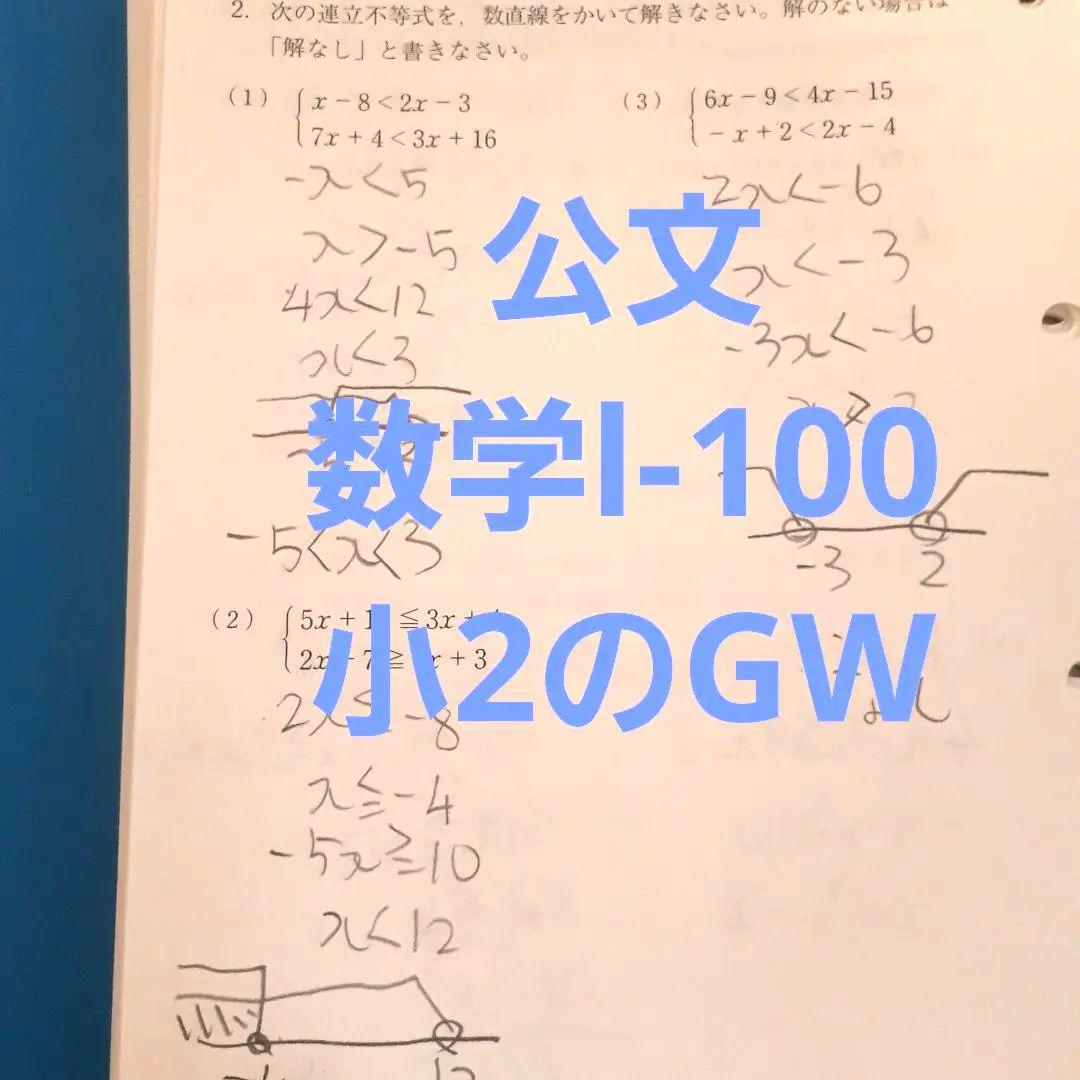 2. 次の連立不等式を，数直線をかいて解きなさい。解のない場合は
「解なし」と書きなさい。
(1)
x − 8 < 2x − 3
7x + 4 < 3x + 16
-x < 5
x > -5
4x < 12
x < 3
-5 < x < 3
(2)
5x + 1 ≦ 3x +
2x 7 ≧ x + 3
2x ≦ -8
x ≦ -4
-5x ≧ 10
x < 12
12
(3)
6x − 9 < 4x − 15
− x + 2 < 2x − 4
2x < -6
x < -3
-3x < -6
-3 2
なし
公文
数学I-100
小2のGW